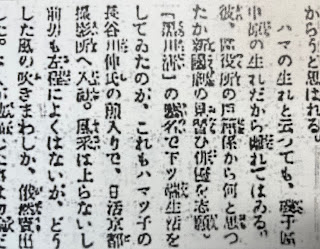 からうと思はれる。
ハマの生れと云つても、磯子區
中原の生れだから離れてはゐる。
彼、區役所の戸籍係から何と思つ
たか新國劇の見習ひ俳優を志願
「黒川清」の藝名で下ツ端生活を
してゐたのが、これもハマツ子の
長谷川伸氏の煎入りで、日活京都
撮影所へ入社。風采は上らないし
前身も左程によくはないが、どう
した風の吹きまわしか、俄然賣出
した。